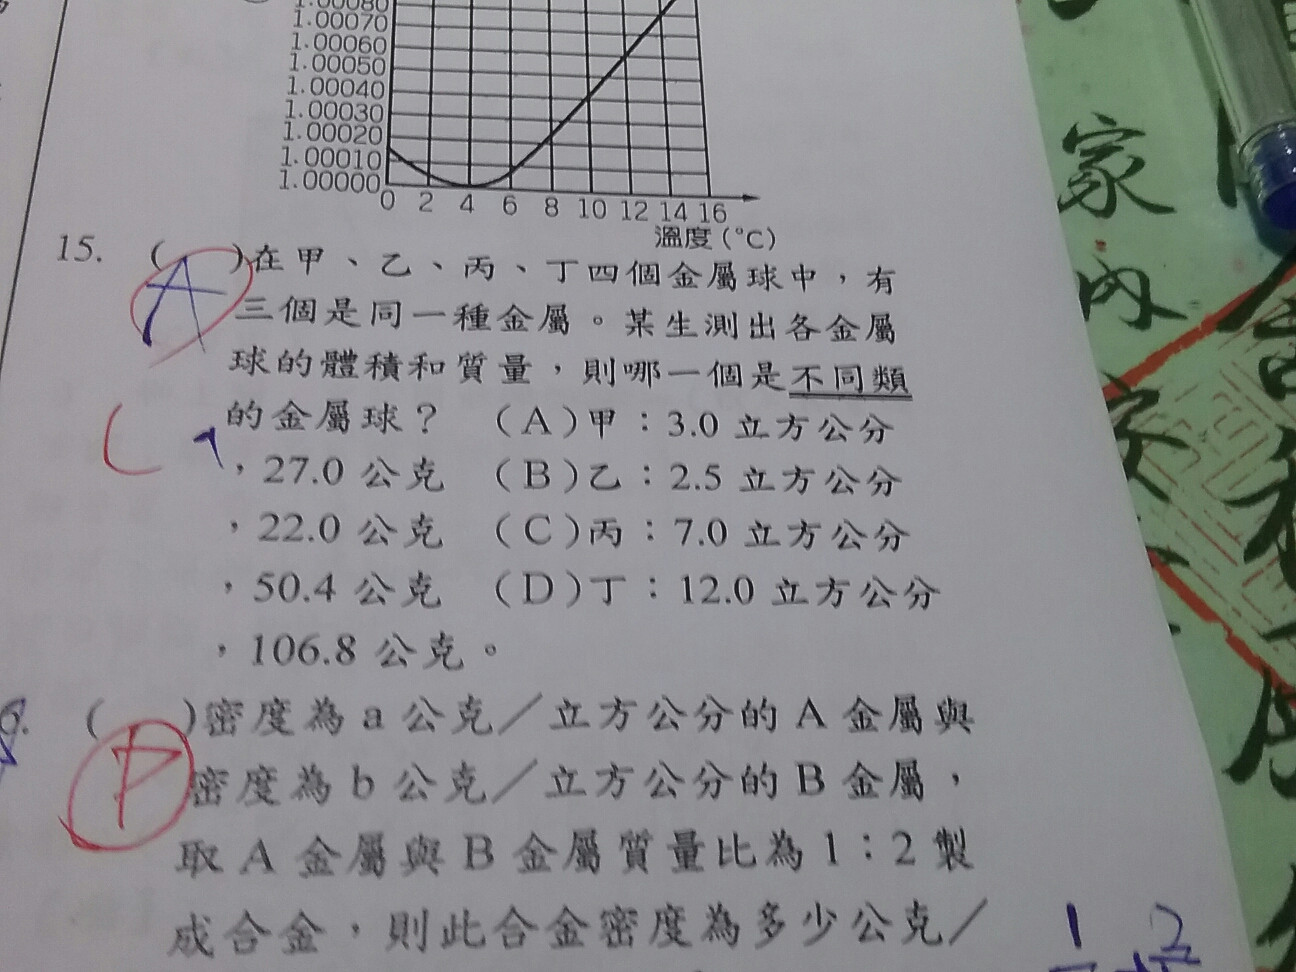 1.00080
1.00070
1.00060
1.00050
1.00040
1.00030
1.00020
1.00010
1.00000
0 2 4 6 8 10 12 14 16
溫度(℃)
15. ( A )在甲、乙、丙、丁四個金屬球中，有
三個是同一種金屬。某生測出各金屬
球的體積和質量，則哪一個是不同類
的金屬球？ (A)甲：3.0 立方公分
，27.0 公克 (B)乙：2.5 立方公分
，22.0 公克 (C)丙：7.0 立方公分
，50.4 公克 (D)丁：12.0 立方公分
，106.8 公克。
C
( )密度為 a 公克／立方公分的 A 金屬與
密度為 b 公克／立方公分的 B 金屬，
取 A 金屬與 B 金屬質量比為 1：2 製
成合金，則此合金密度為多少公克／
1 2
家
內